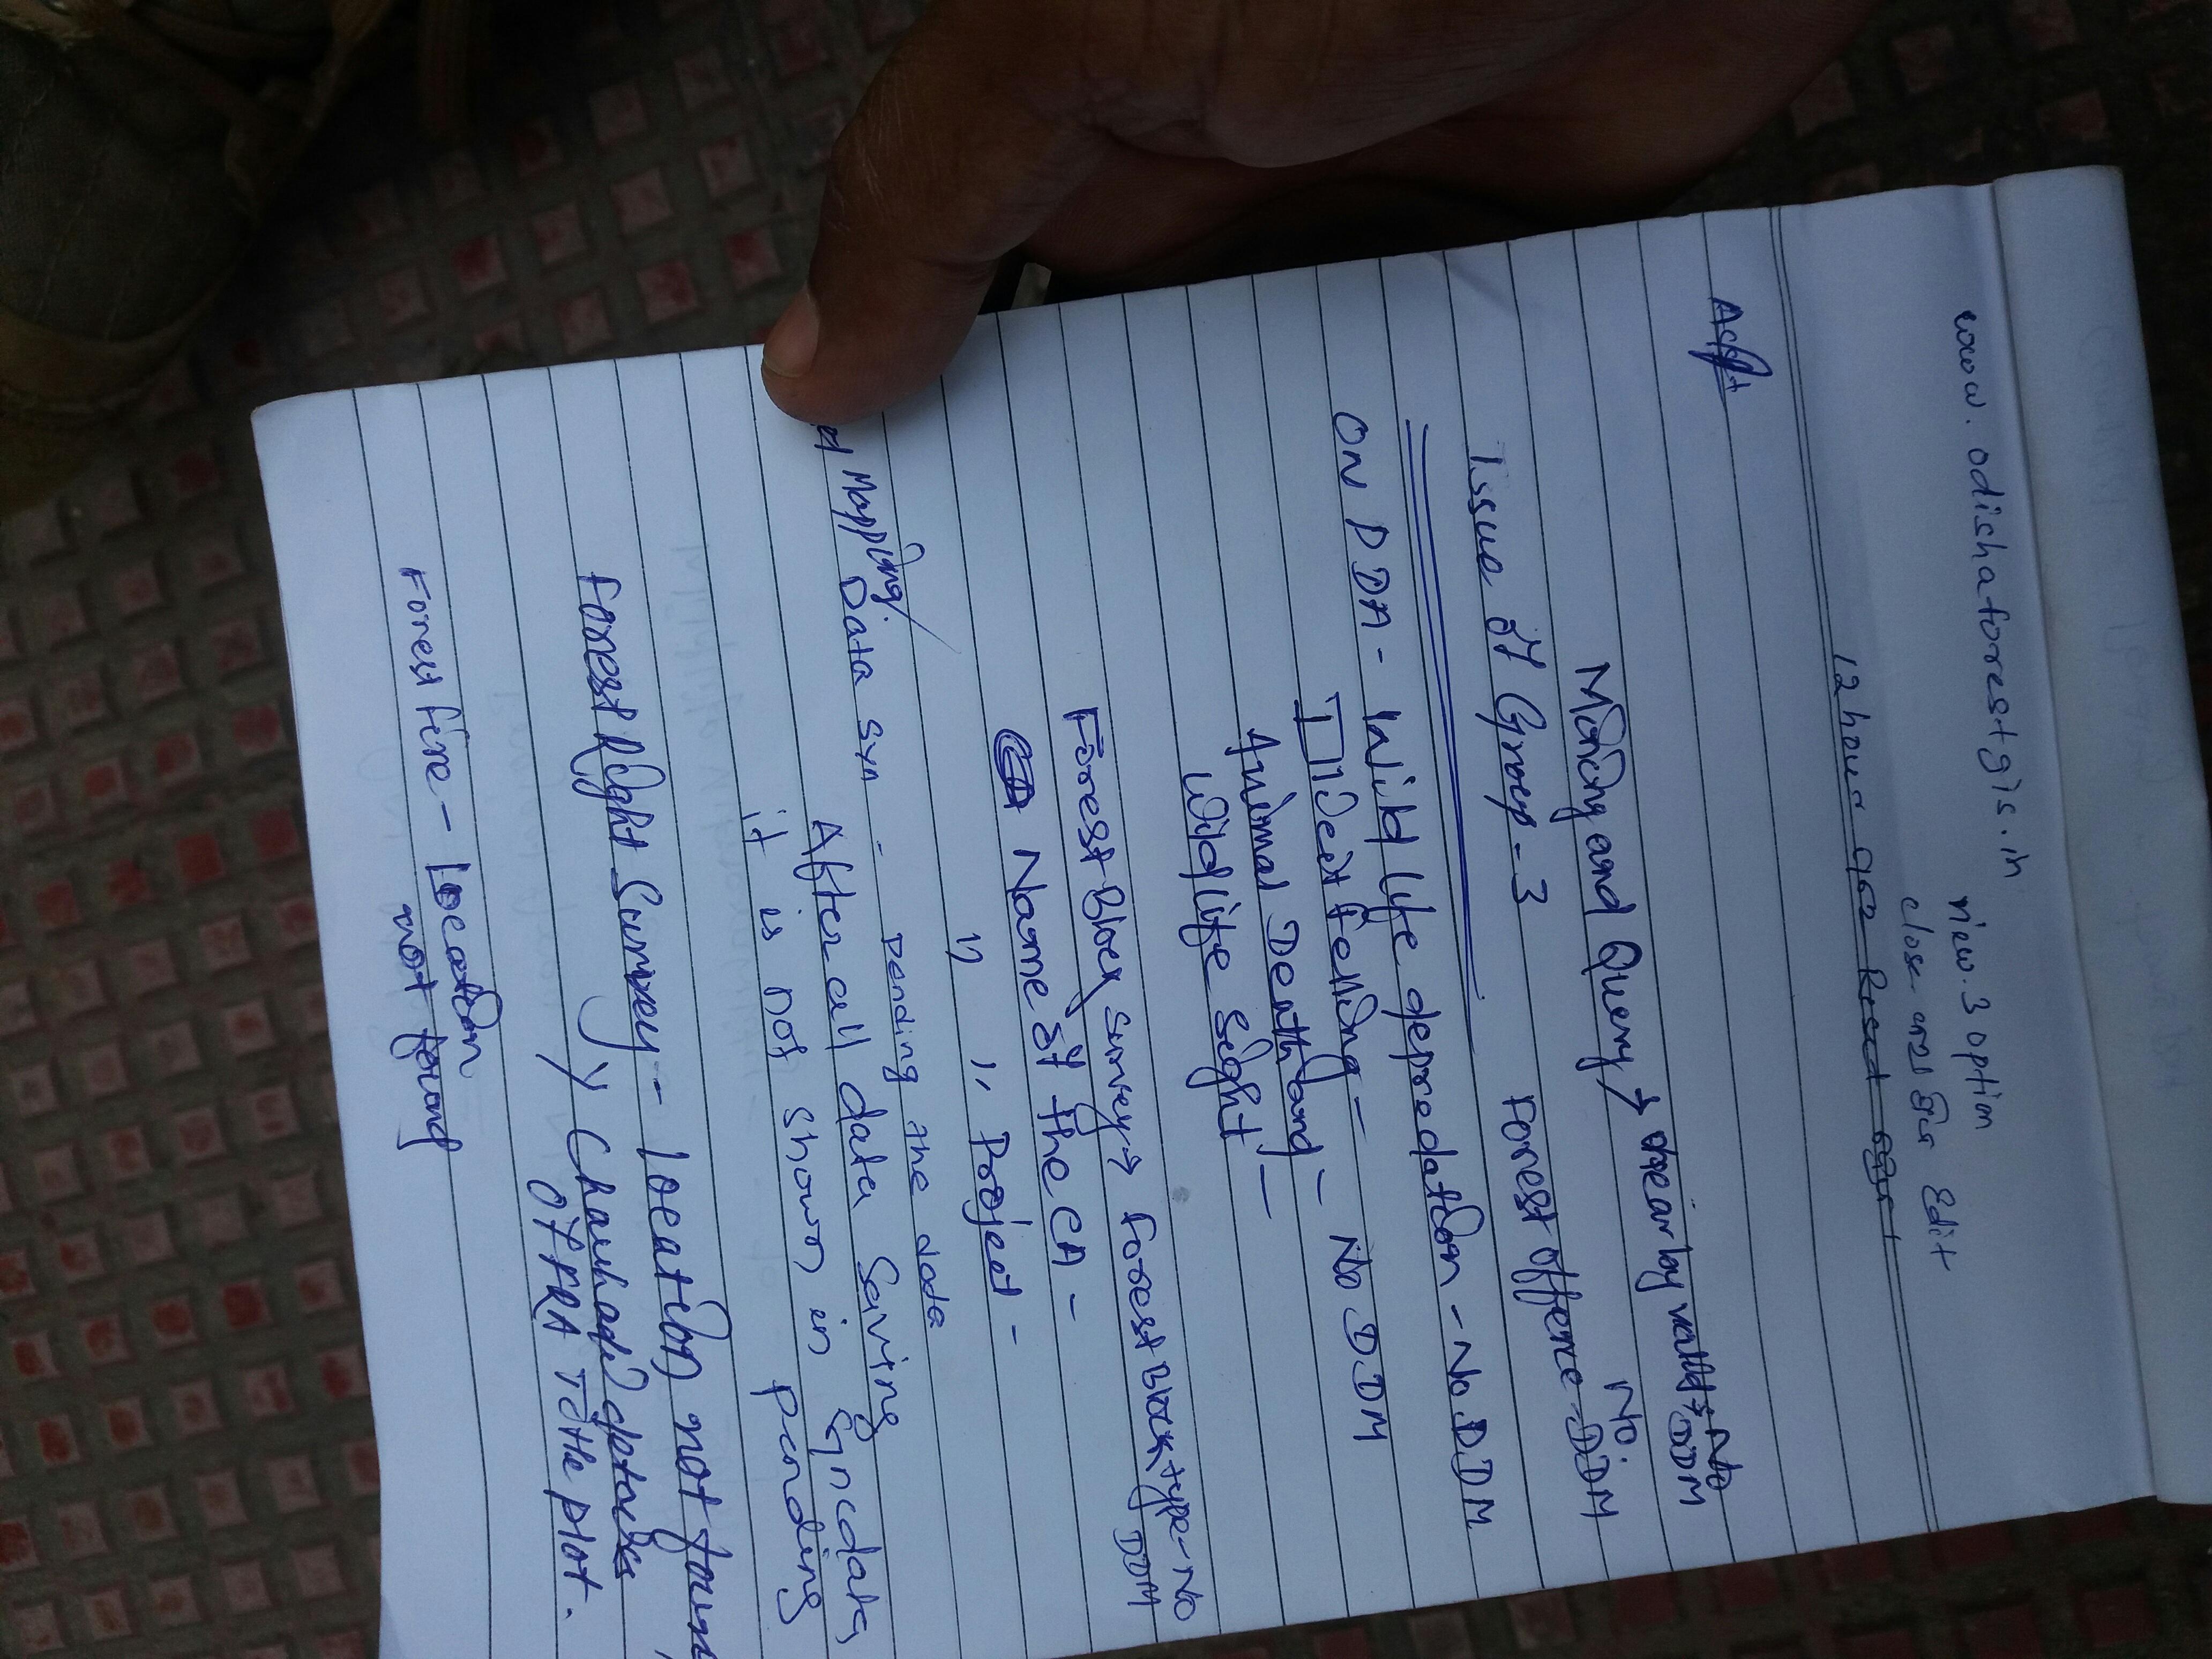 www.odishaforestgis.in
view.3 option
close Edit
12 hour Reset
Mining and Quarry → nearby → No DDM
Issue of Group-3 Forest offence - No. DDM
ON PDA - Wild life depredation - No DDM
Illicit felling - No DDM
Animal Death and -
Wildlife Sight -
Forest Block survey → Forest Block type - No DDM
Name of the CA -
" " Project -
Mapping Data Syn - pending the data
After all data Saving
it is not shown in pending
Forest Right Survey - location not
of FRA Title plot.
Forest fire - location
not found